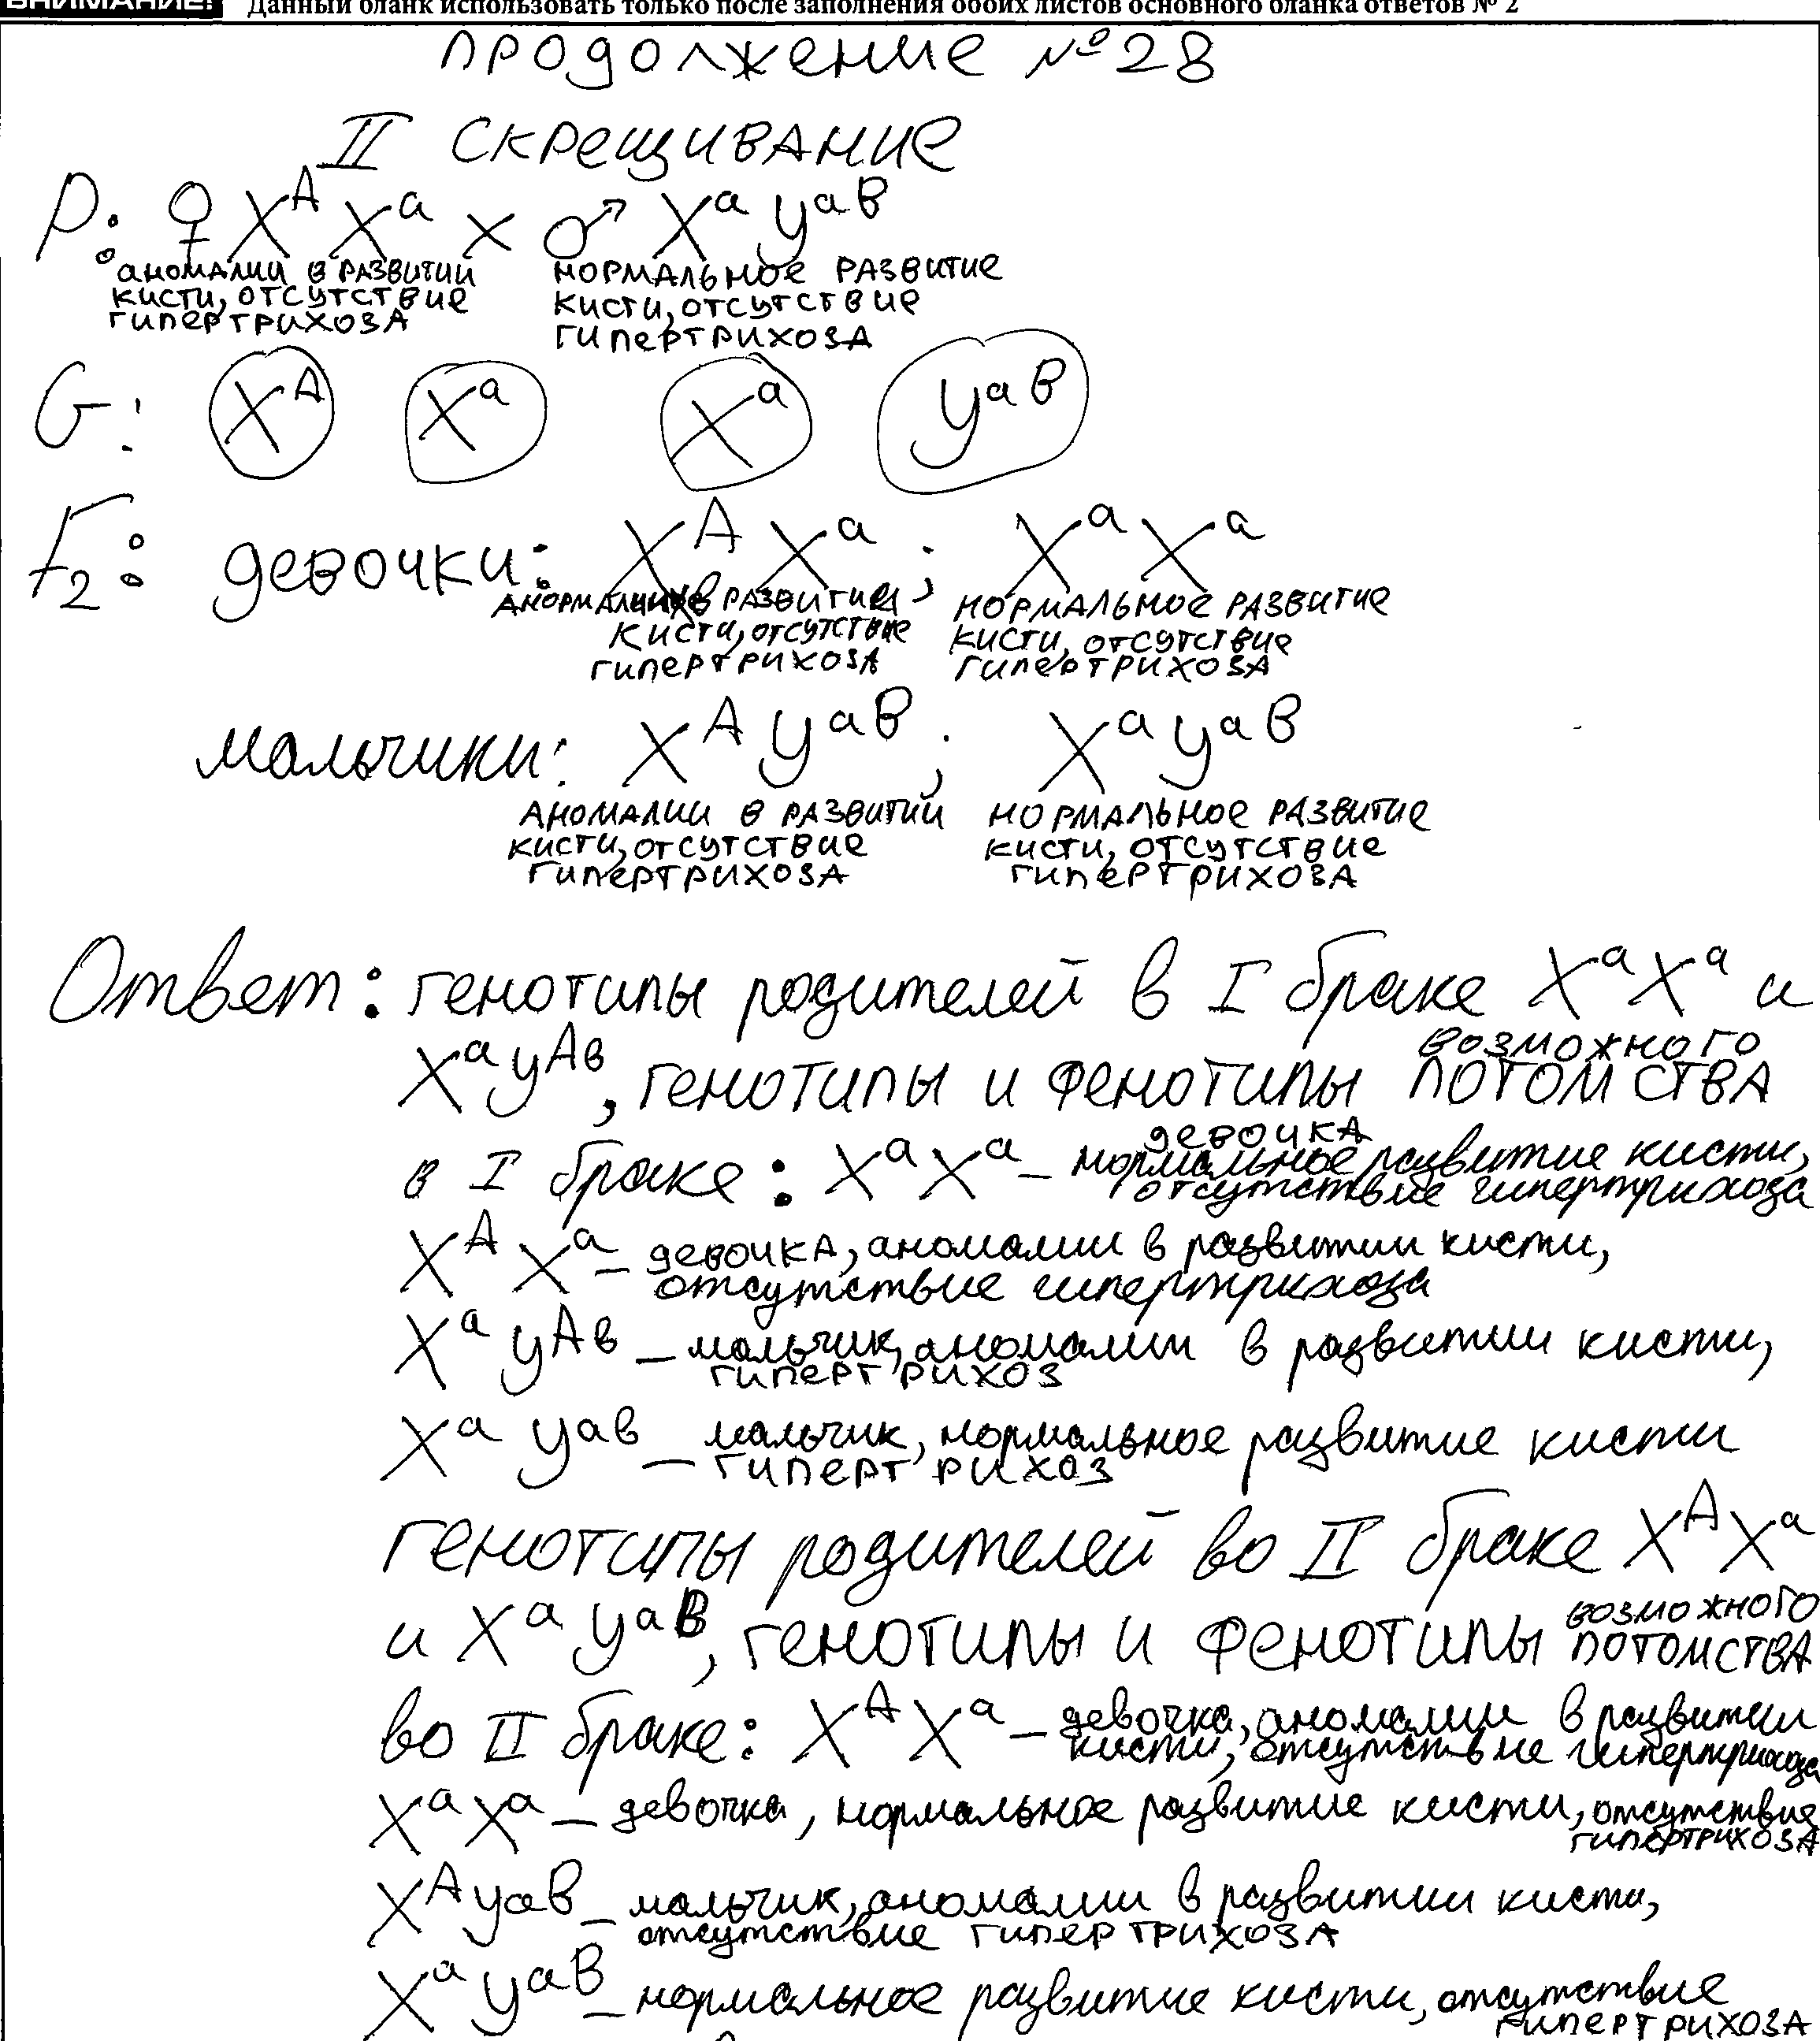 ВНИМАНИЕ! Данный бланк использовать только после заполнения обоих листов основного бланка ответов № 2
продолжение №28
II скрещивание
P: ♀ X^A X^a × ♂ X^a y^aB
аномалии в развитии кисти, отсутствие гипертрихоза
нормальное развитие кисти, отсутствие гипертрихоза
G: X^A X^a X^a y^aB
F2: девочки: X^A X^a ; X^a X^a
развитии кисти, отсутствие гипертрихоза
нормальное развитие кисти, отсутствие гипертрихоза
мальчики: X^A y^aB ; X^a y^aB
аномалии в развитии кисти, отсутствие гипертрихоза
нормальное развитие кисти, отсутствие гипертрихоза
Ответ: генотипы родителей в I браке X^a X^a и
X^a y^Aв, генотипы и фенотипы возможного потомства
в I браке: X^a X^a – девочка нормальное развитие кисти, отсутствие гипертрихоза
X^A X^a – девочка, аномалии в развитии кисти, отсутствие гипертрихоза
X^a y^Aв – мальчик, аномалии в развитии кисти, гипертрихоз
X^a y^aв – мальчик, нормальное развитие кисти гипертрихоз
генотипы родителей во II браке X^A X^a
и X^a y^aB, генотипы и фенотипы возможного потомства
во II браке: X^A X^a – девочка, аномалии в развитии кисти, отсутствие гипертрихоза
X^a X^a – девочка, нормальное развитие кисти, отсутствие гипертрихоза
X^A y^aB – мальчик, аномалии в развитии кисти, отсутствие гипертрихоза
X^a y^aB – нормальное развитие кисти, отсутствие гипертрихоза